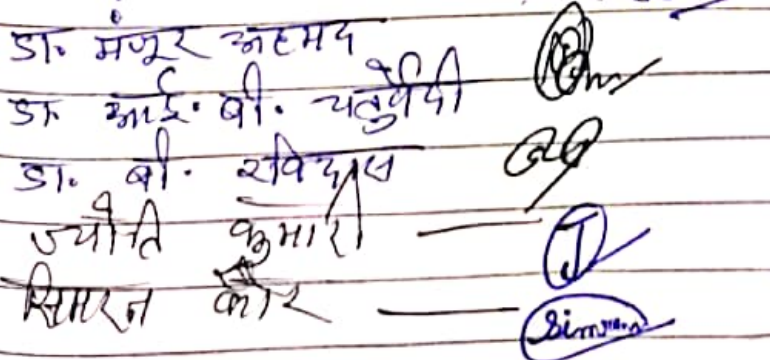 डा. मंजूर अहमद
डा. आई. बी. चतुर्वेदी
डा. बी. रविदास
ज्योति कुमारी — J
सिमरन कौर — Simran